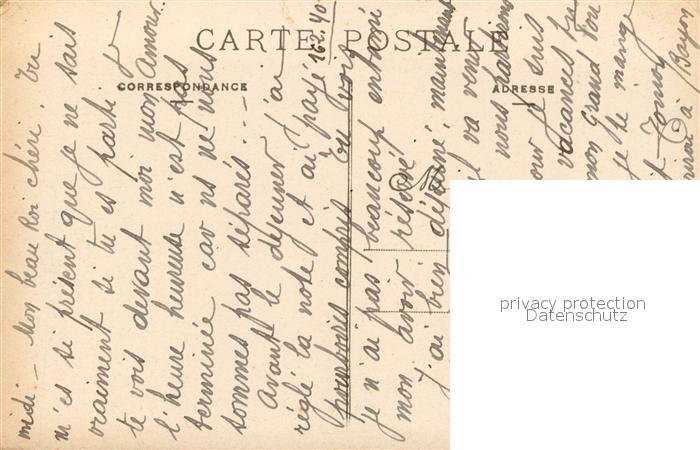 CARTE POSTALE
CORRESPONDANCE
ADRESSE
midi — Mon beau Roi chéri. Tu
m'es si présent que je ne sais
vraiment si tu es parti
te vois devant moi mon Amour.
l'heure heureuse n'est pas
terminée car ns ne nous
sommes pas séparés...
Avant le déjeuner j'ai
réglé la note et ai payé
pourboires compris Tu vois
je n'ai pas beaucoup entamé
mon avoir
j'ai bien déjeuné, maintenant
va venir
nous
je suis
vacances tu
mon Grand Fou
je te mange
privacy protection
Datenschutz